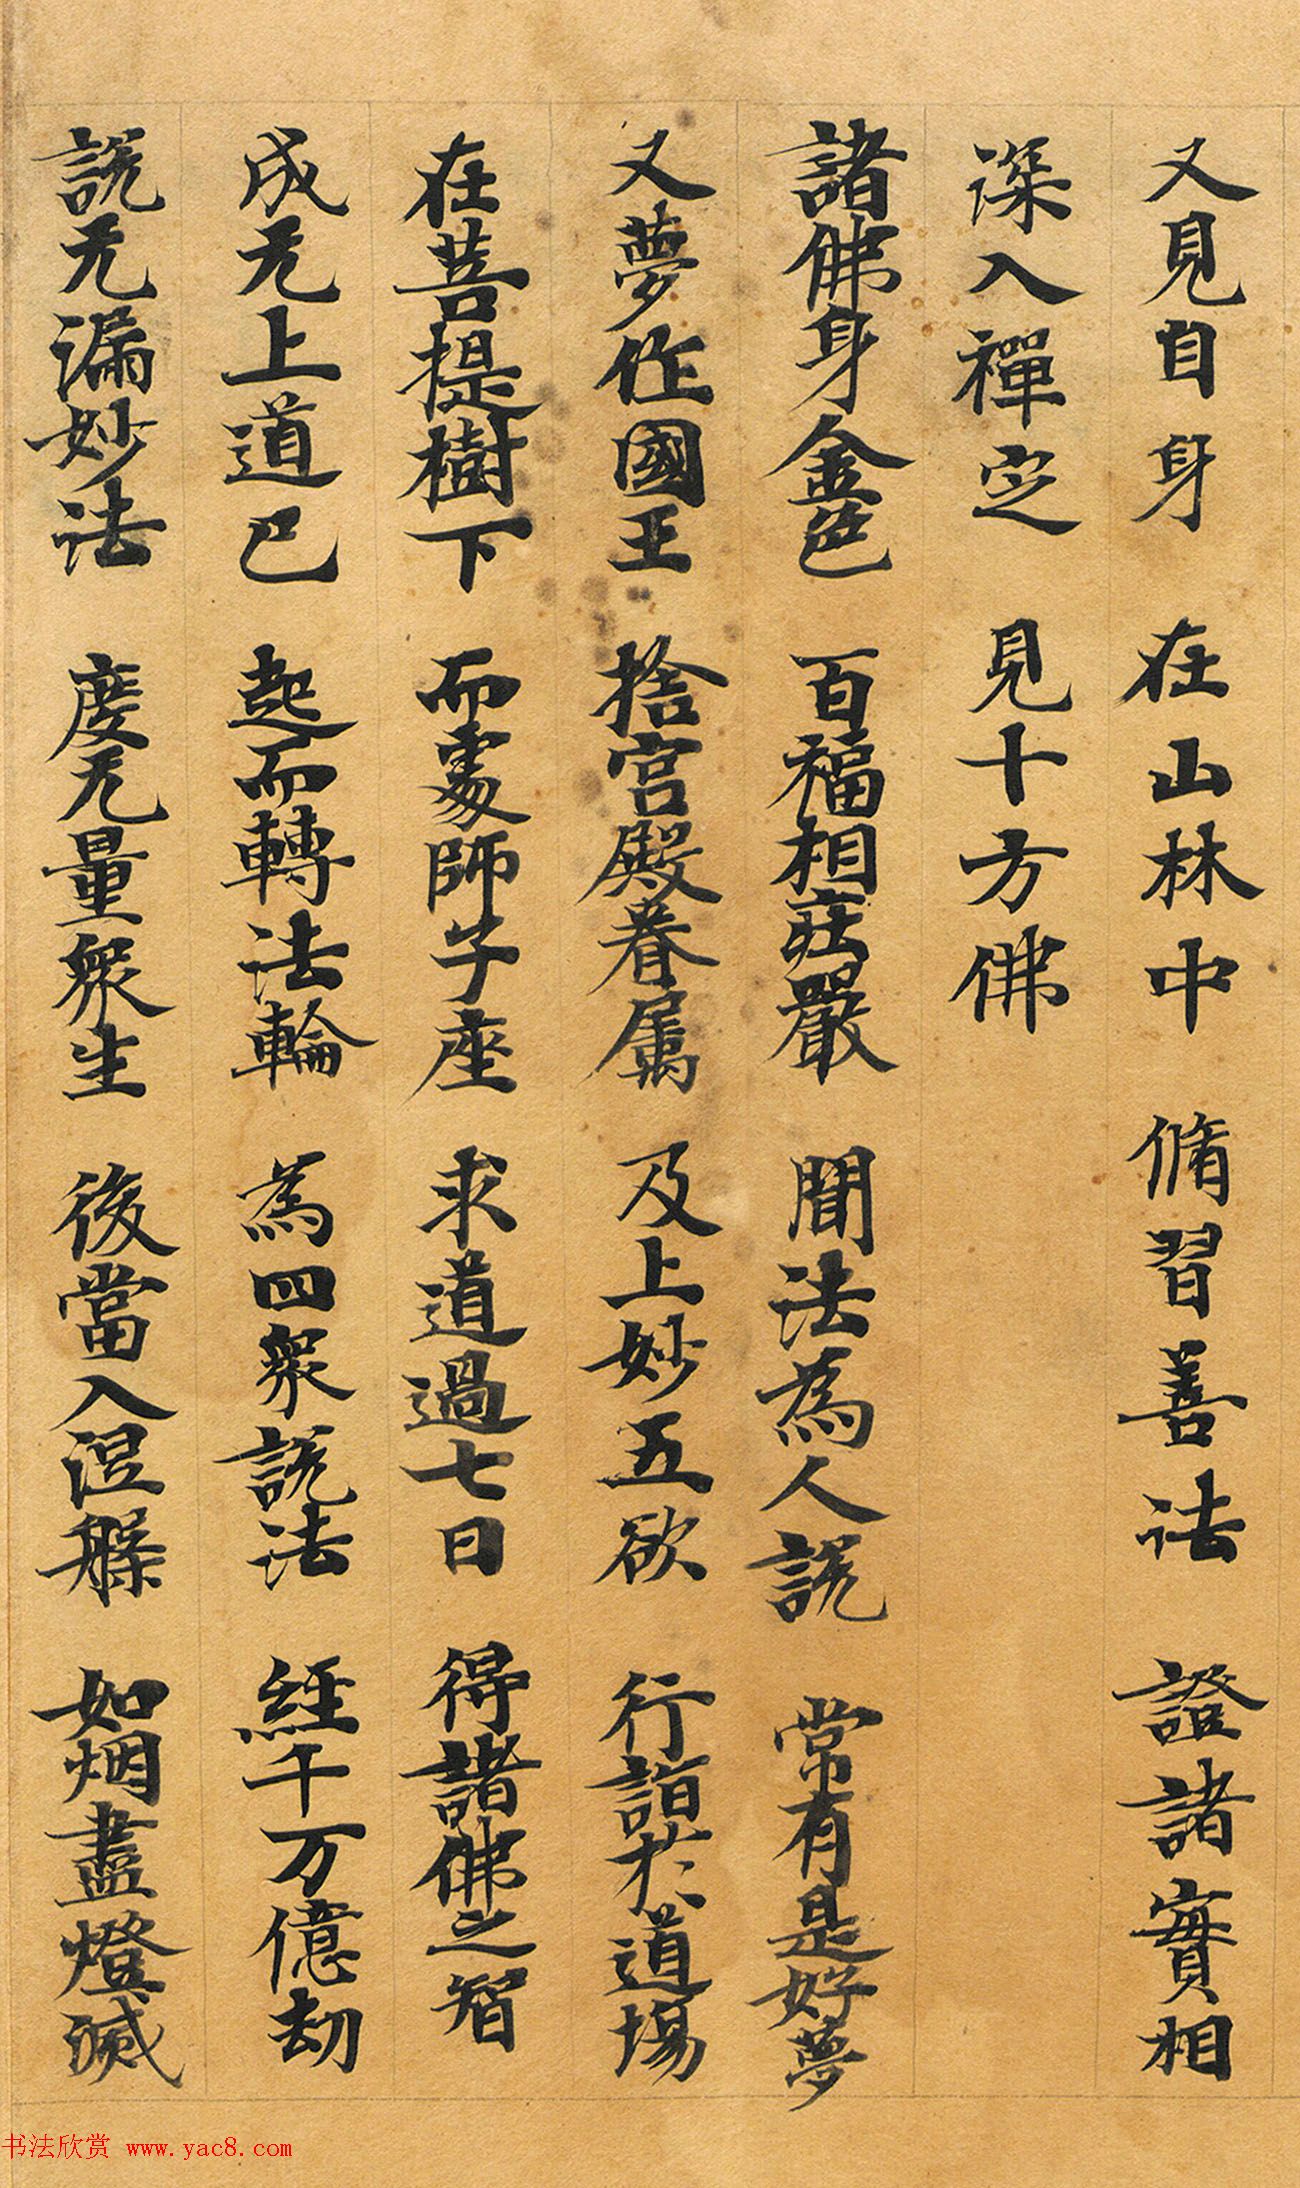 又見自身 在山林中 脩習善法 證諸實相
深入禪定 見十方佛
諸佛身金色 百福相莊嚴 聞法為人説 常有是好夢
又夢作國王 捨宮殿眷属 及上妙五欲 行詣於道場
在菩提樹下 而處師子座 求道過七日 得諸佛之智
成无上道已 起而轉法輪 為四衆説法 經千万億劫
説无漏妙法 度无量衆生 後當入涅槃 如烟盡燈滅
书法欣赏 www.yac8.com